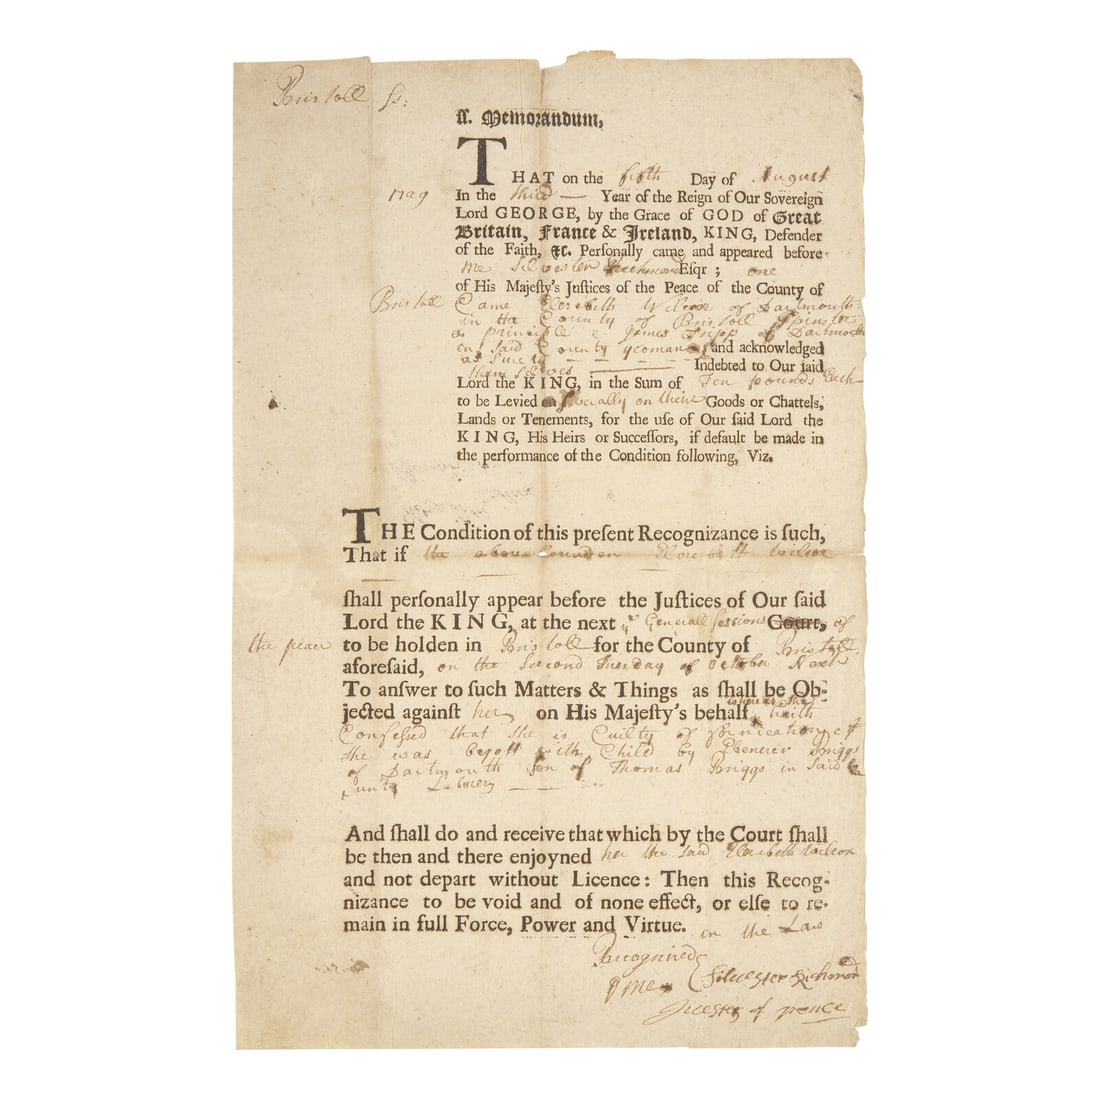 Bristoll ss:
ss. Memorandum,
THAT on the fifth Day of August
1729 In the third — Year of the Reign of Our Sovereign
Lord GEORGE, by the Grace of GOD of Great
Britain, France & Ireland, KING, Defender
of the Faith, &c. Personally came and appeared before
me Silvester Richmond Esqr; one
of His Majesty's Justices of the Peace of the County of
Bristoll Came Elizebeth Wilcox of Dartmouth
in the County of Bristoll Spinster
as principle & James Tripp of Dartmouth
in said County yeoman and acknowledged
as Surety — — — —
them selves — Indebted to Our said
Lord the KING, in the Sum of Ten pounds Each
to be Levied on severally on their Goods or Chattels,
Lands or Tenements, for the use of Our said Lord the
KING, His Heirs or Successors, if default be made in
the performance of the Condition following, Viz.
THE Condition of this present Recognizance is such,
That if the above bounden Elizebeth wilcox
shall personally appear before the Justices of Our said
Lord the KING, at the next Generall sessions Court, of
the peace to be holden in Bristoll for the County of Bristoll
aforesaid, on the Second Tuesday of October Next
To answer to such Matters & Things as shall be Ob-
jected against her on His Majesty's behalf whereas she haith
Confessed that she is Guilty of fornication &
she was begott with Child by Ebenezer Briggs
of Dartmouth son of Thomas Briggs in said
Labourer — — —
And shall do and receive that which by the Court shall
be then and there enjoyned her the said Elizebeth wilcox
and not depart without Licence: Then this Recog-
nizance to be void and of none effect, or else to re-
main in full Force, Power and Virtue. in the Law
Recognized
p me Silvester Richmond
Jucestes of peace